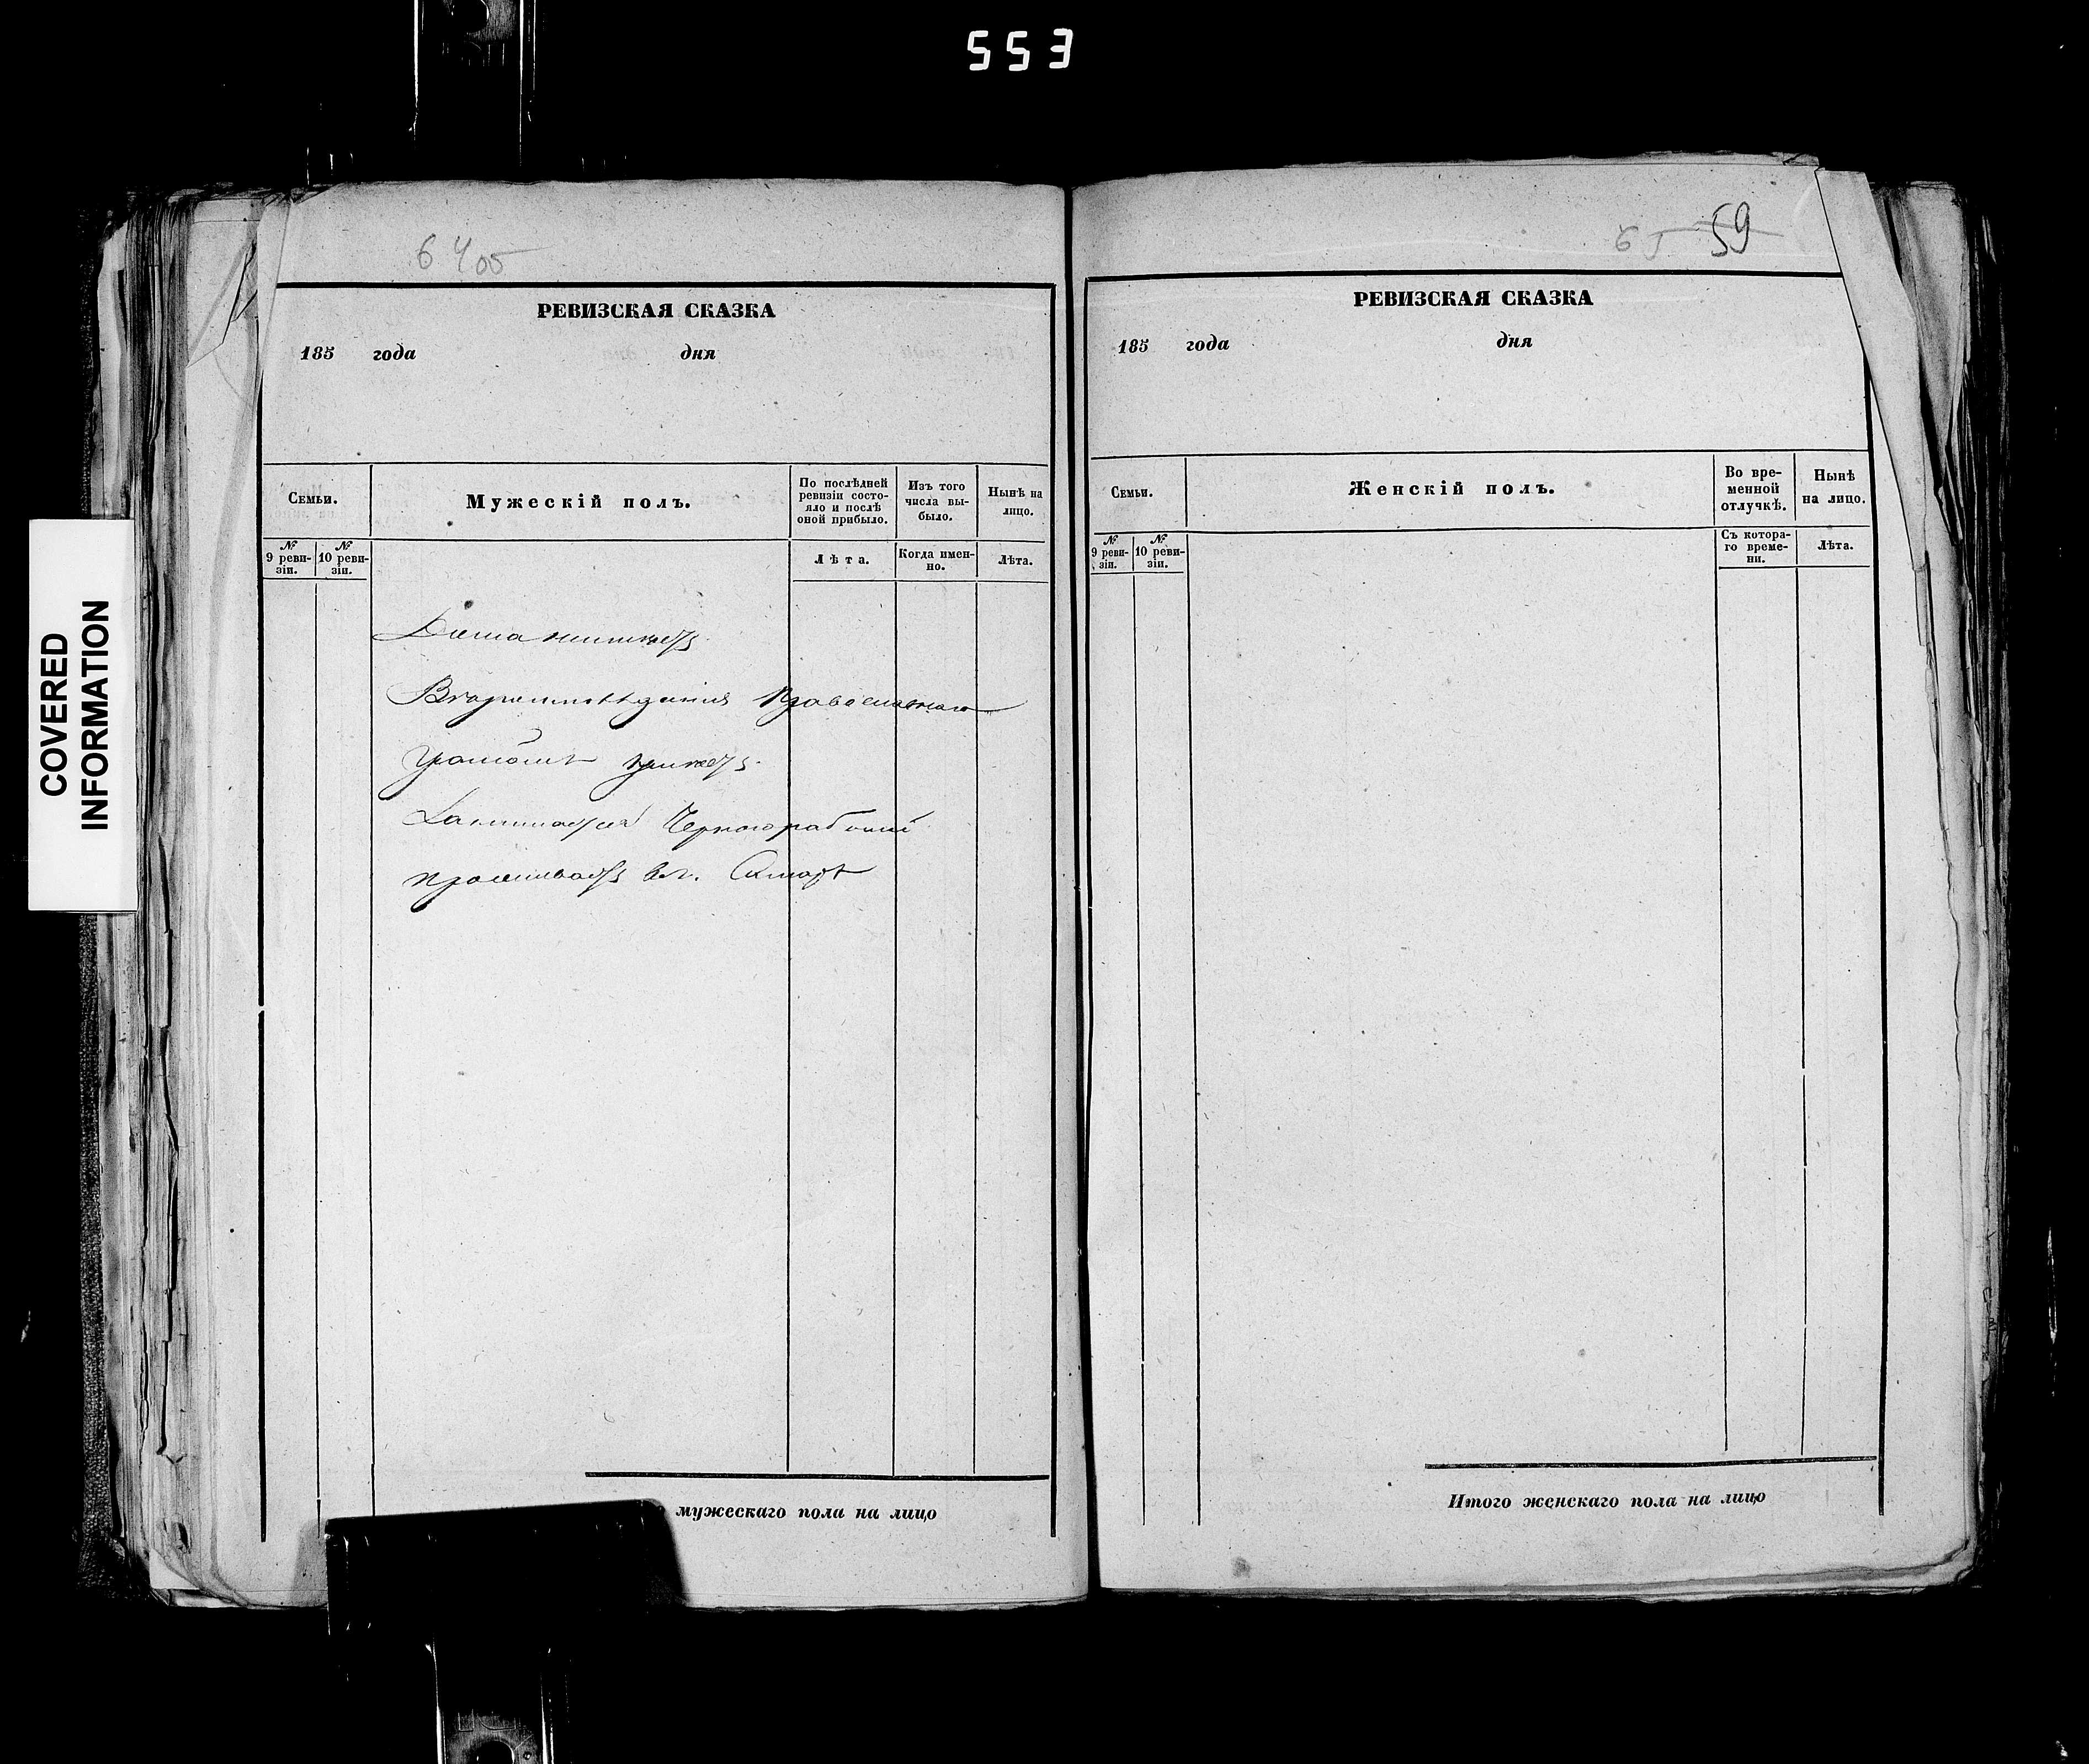 553
6405
РЕВИЗСКАЯ СКАЗКА
185 года дня
Семьи.
Мужескій полъ.
По послѣдней
ревизіи состо-
яло и послѣ
оной прибыло.
Изъ того
числа вы-
было.
Нынѣ на
лицо.
№
9 реви-
зіи.
№
10 реви-
зіи.
Лѣта.
Когда имен-
но.
Лѣта.
Вѣроисповѣданія Православнаго
Занимается Чернорабочий
проживаетъ в г.
мужескаго пола на лицо
65 59
РЕВИЗСКАЯ СКАЗКА
185 года дня
Семьи.
Женскій полъ.
Во вре-
менной
отлучкѣ.
Нынѣ
на лицо.
№
9 реви-
зіи.
№
10 реви-
зіи.
Съ котора-
го време-
ни.
Лѣта.
Итого женскаго пола на лицо
COVERED
INFORMATION